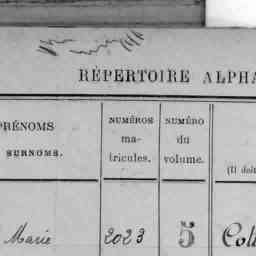 RÉPERTOIRE ALPHA
PRÉNOMS
SURNOMS.
NUMÉROS
ma-
tricules.
NUMÉRO
du
volume.
(Il doit
Marie 2023 5 Coll